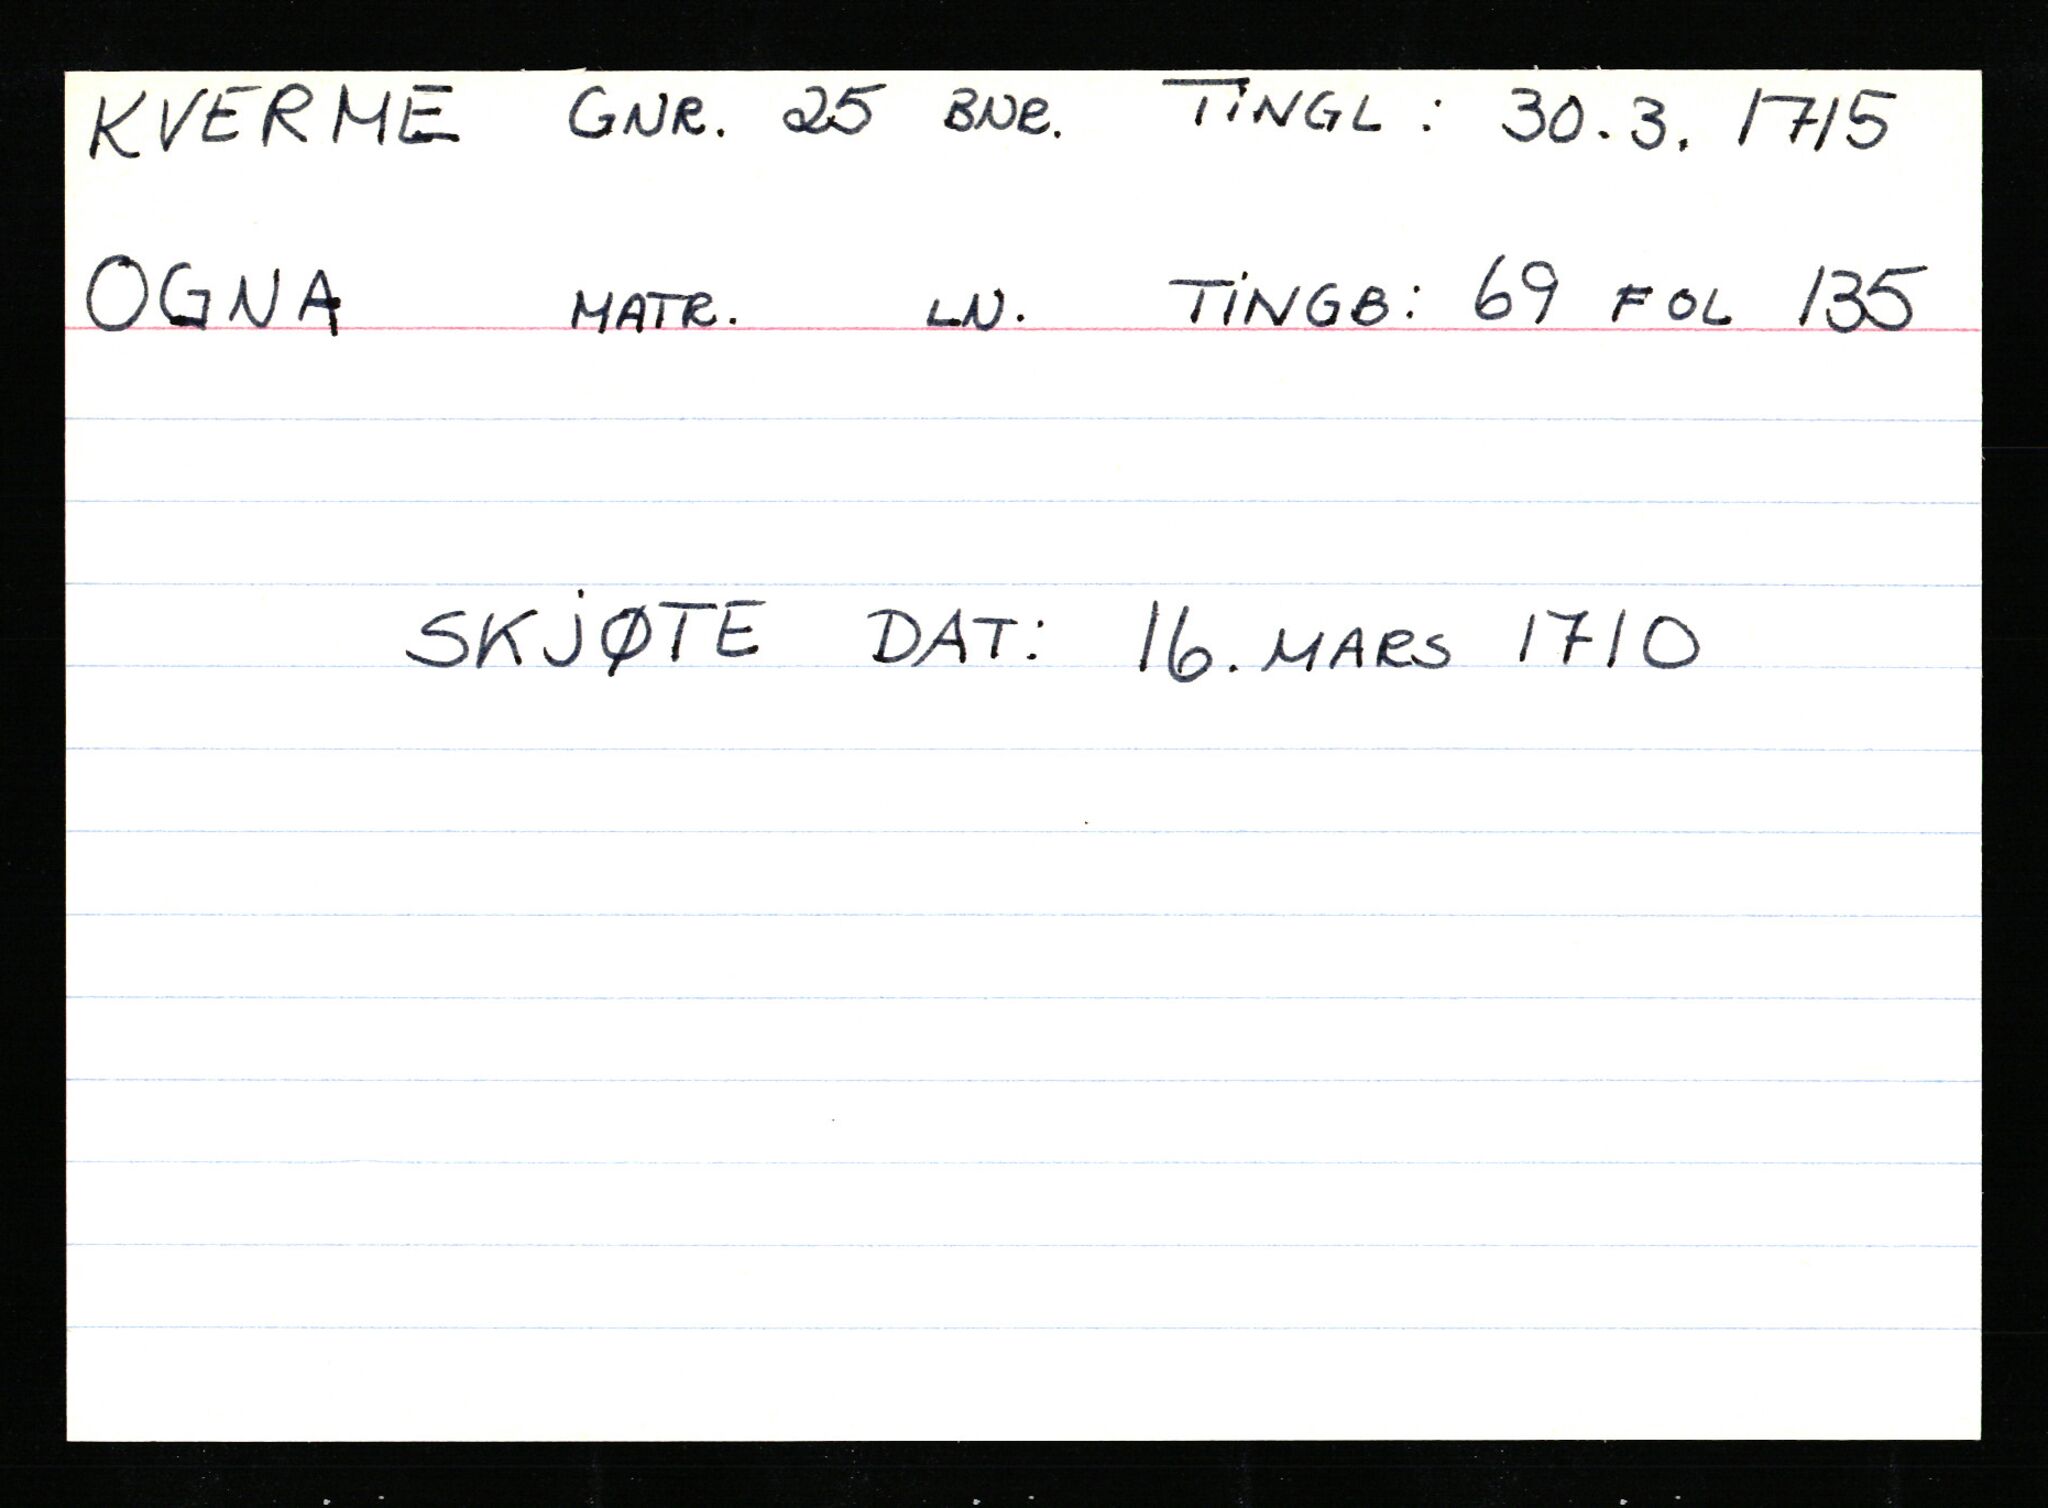 KVERME GNR. 25 BNR. TINGL: 30.3.1715
OGNA MATR. LN. TINGB: 69 FOL 135
SKJØTE DAT: 16. MARS 1710